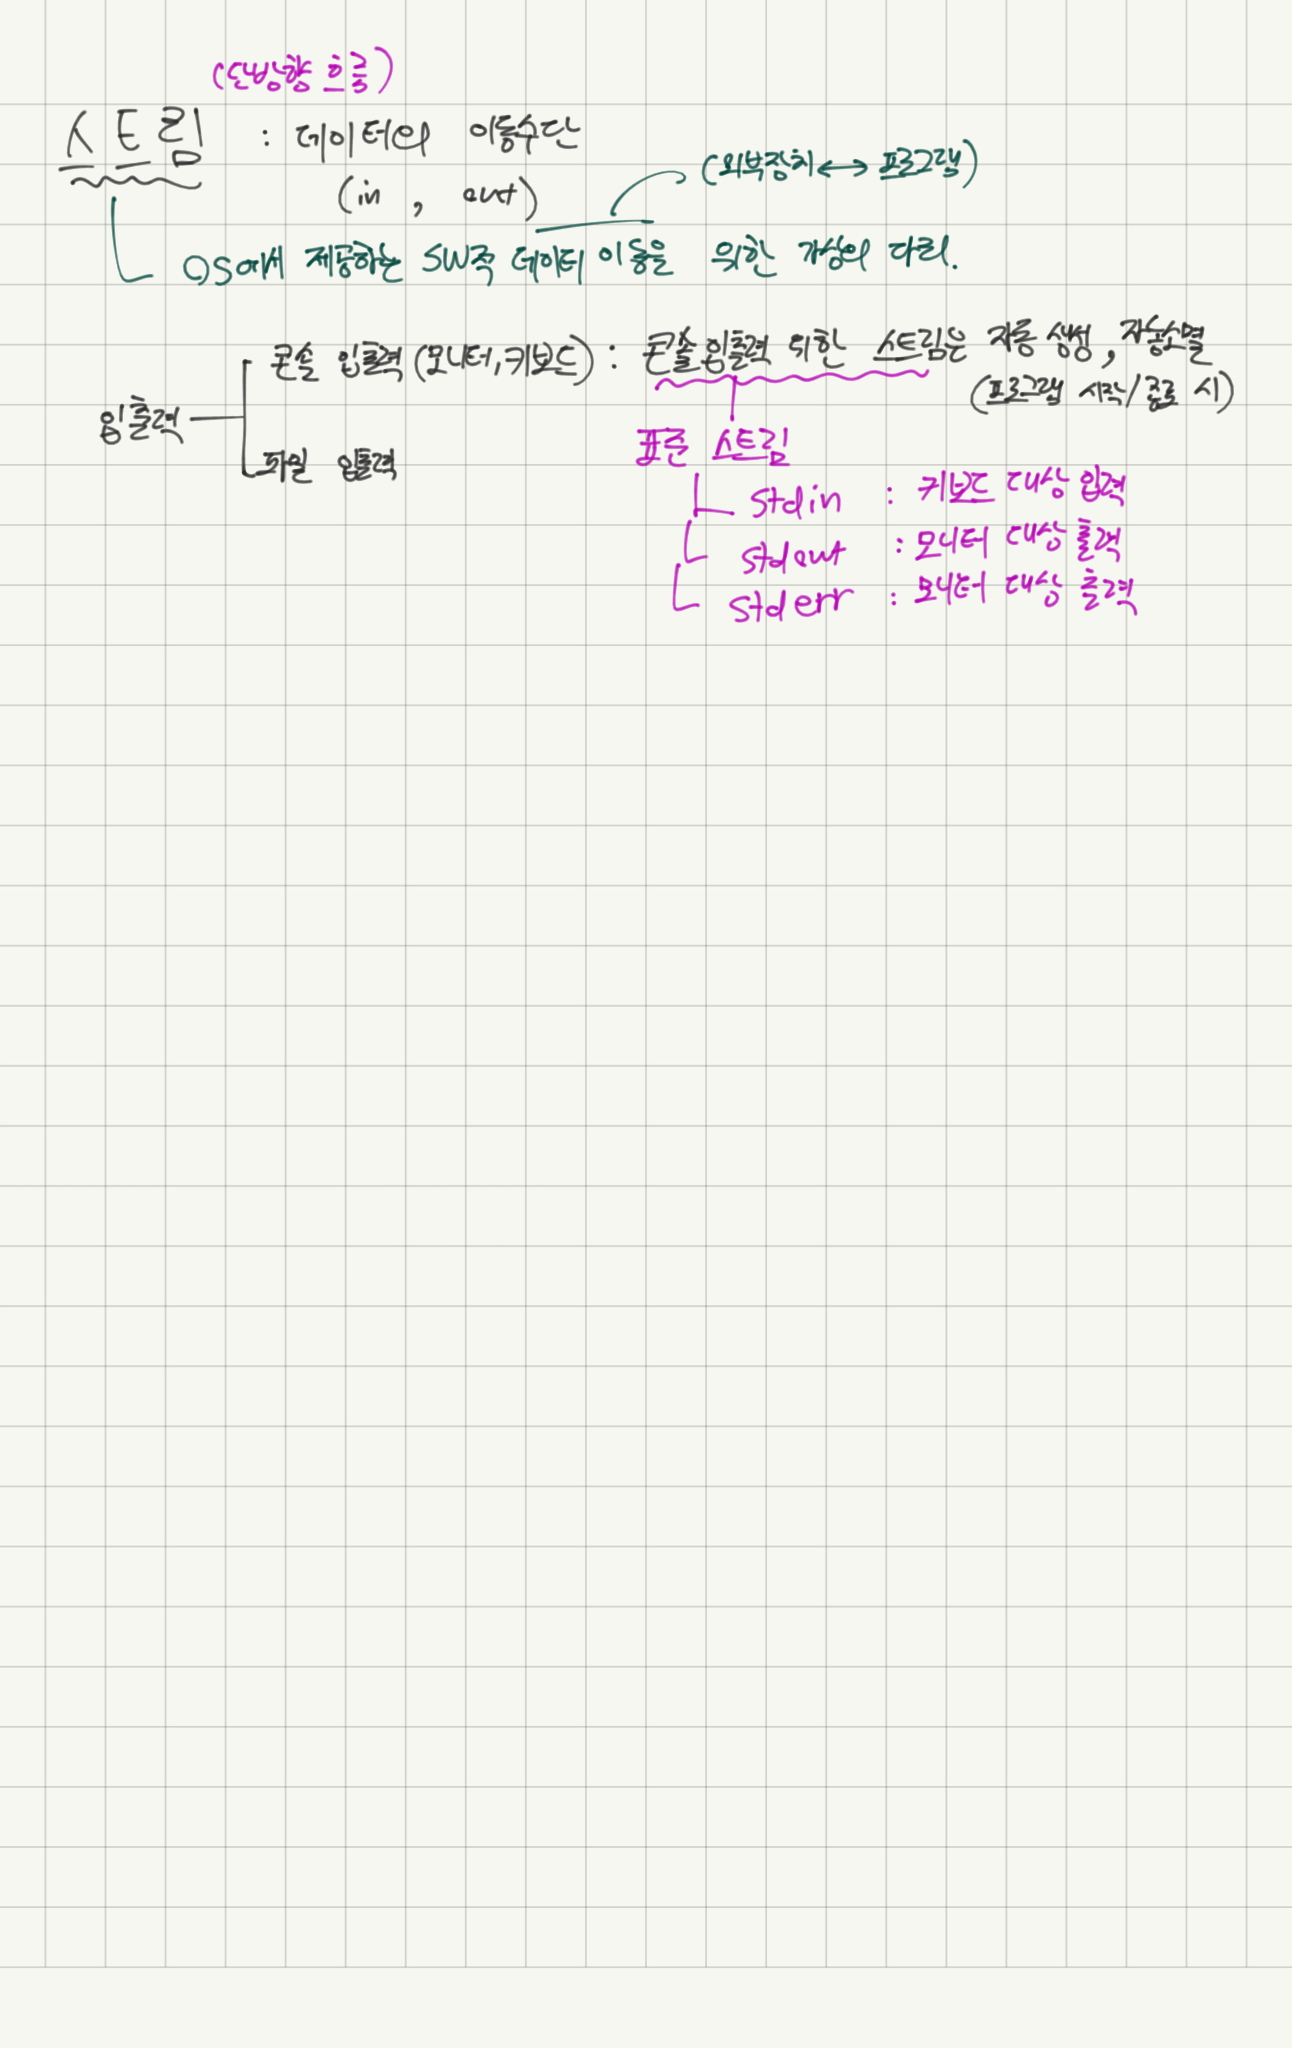 (단방향 흐름)
스트림 : 데이터의 이동수단
(in , out)
(외부장치 ↔ 프로그램)
OS에서 제공하는 SW적 데이터 이동을 위한 가상의 다리.
콘솔 입출력 (모니터, 키보드) : 콘솔 입출력 위한 스트림은 자동 생성, 자동소멸
(프로그램 시작/종료 시)
입출력
파일 입출력
표준 스트림
stdin : 키보드 대상 입력
stdout : 모니터 대상 출력
stderr : 모니터 대상 출력